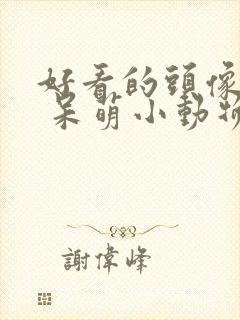 好看的頭像
呆萌小動物
謝偉峰